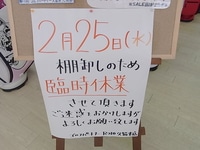 2月25日(水)
棚卸しのため
臨時休業
させて頂きます
ご迷惑をおかけしますが
よろしくお願い致します